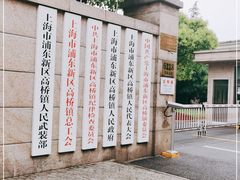 上海市浦东新区高桥镇人民武装部
上海市浦东新区高桥镇总工会
中共上海市浦东新区高桥镇纪律检查委员会
上海市浦东新区高桥镇人民政府
上海市浦东新区高桥镇人民代表大会
中国共产党上海市浦东新区高桥镇委员会